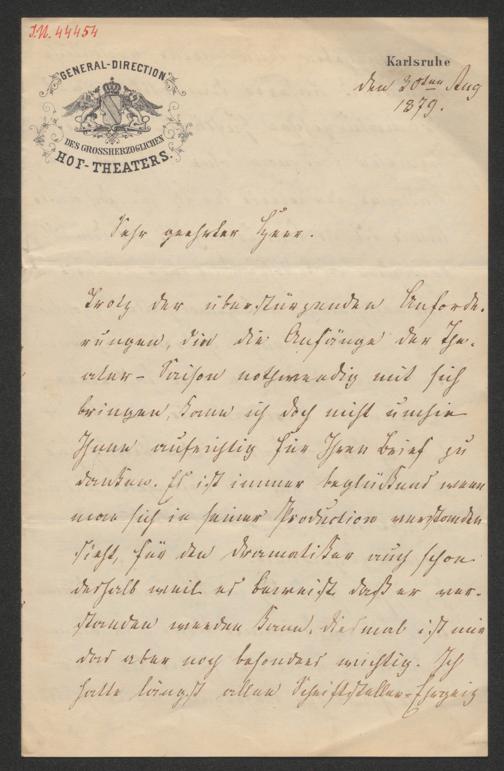 I.N. 44454
GENERAL-DIRECTION
DES GROSSHERZOGLICHEN
HOF-THEATERS.
Karlsruhe
den 30sten Aug
1879.
Sehr geehrter Herr.
Trotz der überstürzenden Anforde-
rungen, die die Anfänge der The-
ater-Saison nothwendig mit sich
bringen, kann ich doch nicht umhin
Ihnen aufrichtig für Ihren Brief zu
danken. Es ist immer beglückend wenn
man sich in seiner Production verstanden
sieht, für den Dramatiker auch schon
deshalb weil es beweist daß er ver-
standen werden kann. Diesmal ist mir
das aber noch besonders wichtig. Ich
hatte längst allen Schriftsteller-Ehrgeiz